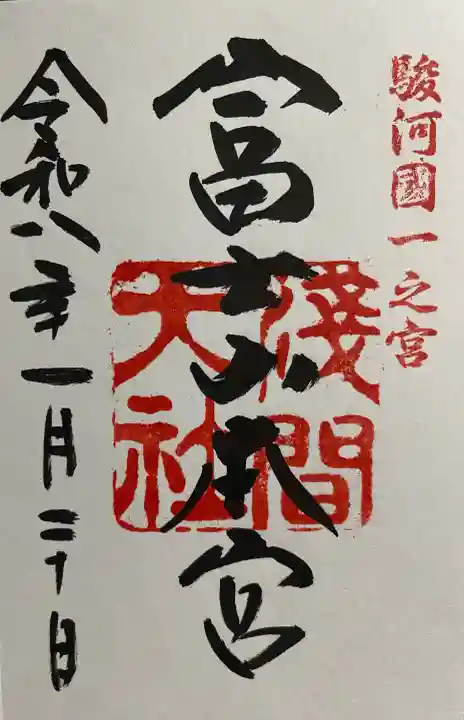 駿河國一之宮
富士山本宮
淺間
大社
令和八年一月二十日